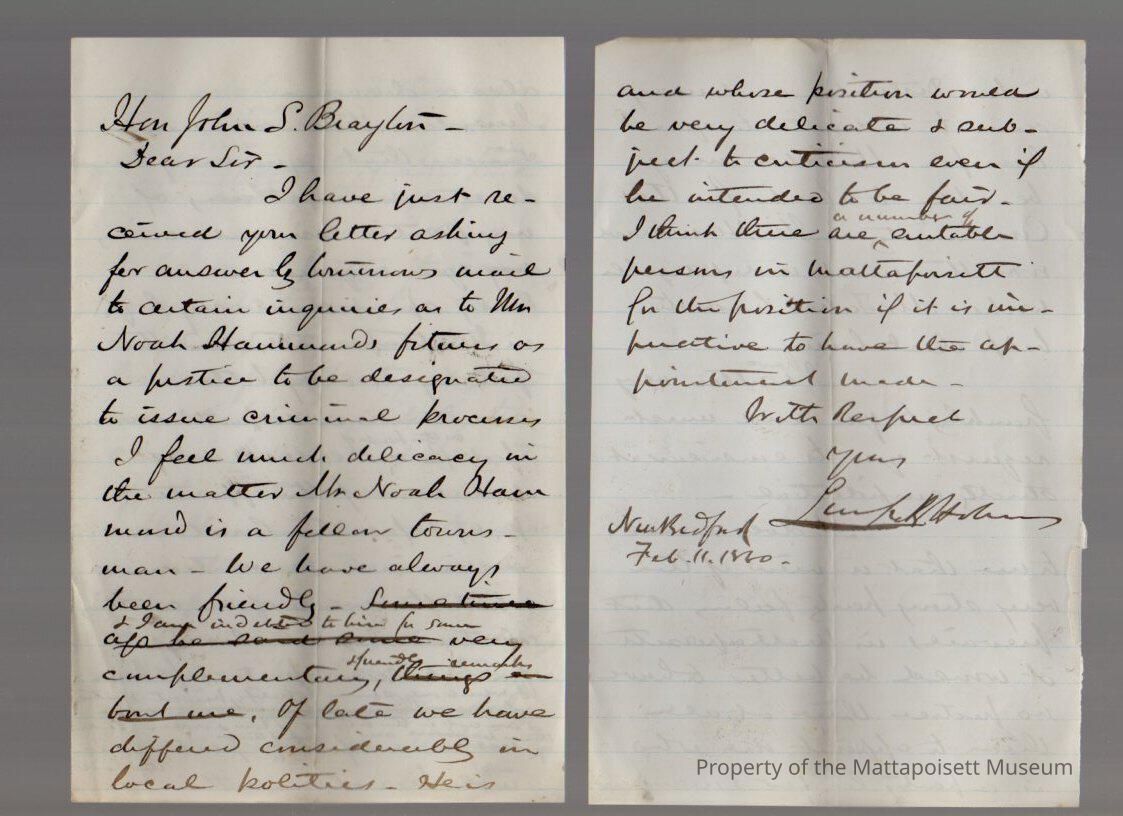 Hon John S. Brayton -
Dear Sir -
I have just re-
ceived your letter asking
for answer by tomorrows mail
to certain inquiries as to Mr
Noah Hammonds fitness as
a justice to be designated
to issue criminal processes
I feel much delicacy in
the matter Mr Noah Ham
mond is a fellow towns-
man - We have always
been friendly - Sometime
& I am indebted to him for some
ago he said some very
& friendly remarks
complementary, things a
bout me. Of late we have
differed considerably in
local politics - He is
and whose position would
be very delicate & sub-
ject to criticism even if
he intended to be fair -
a number of
I think there are suitable
persons in Mattapoisett
for the position if it is im-
perative to have the ap-
pointment made -
With Respect
Yours
New Bedford
Feb. 11. 1880 -
Property of the Mattapoisett Museum